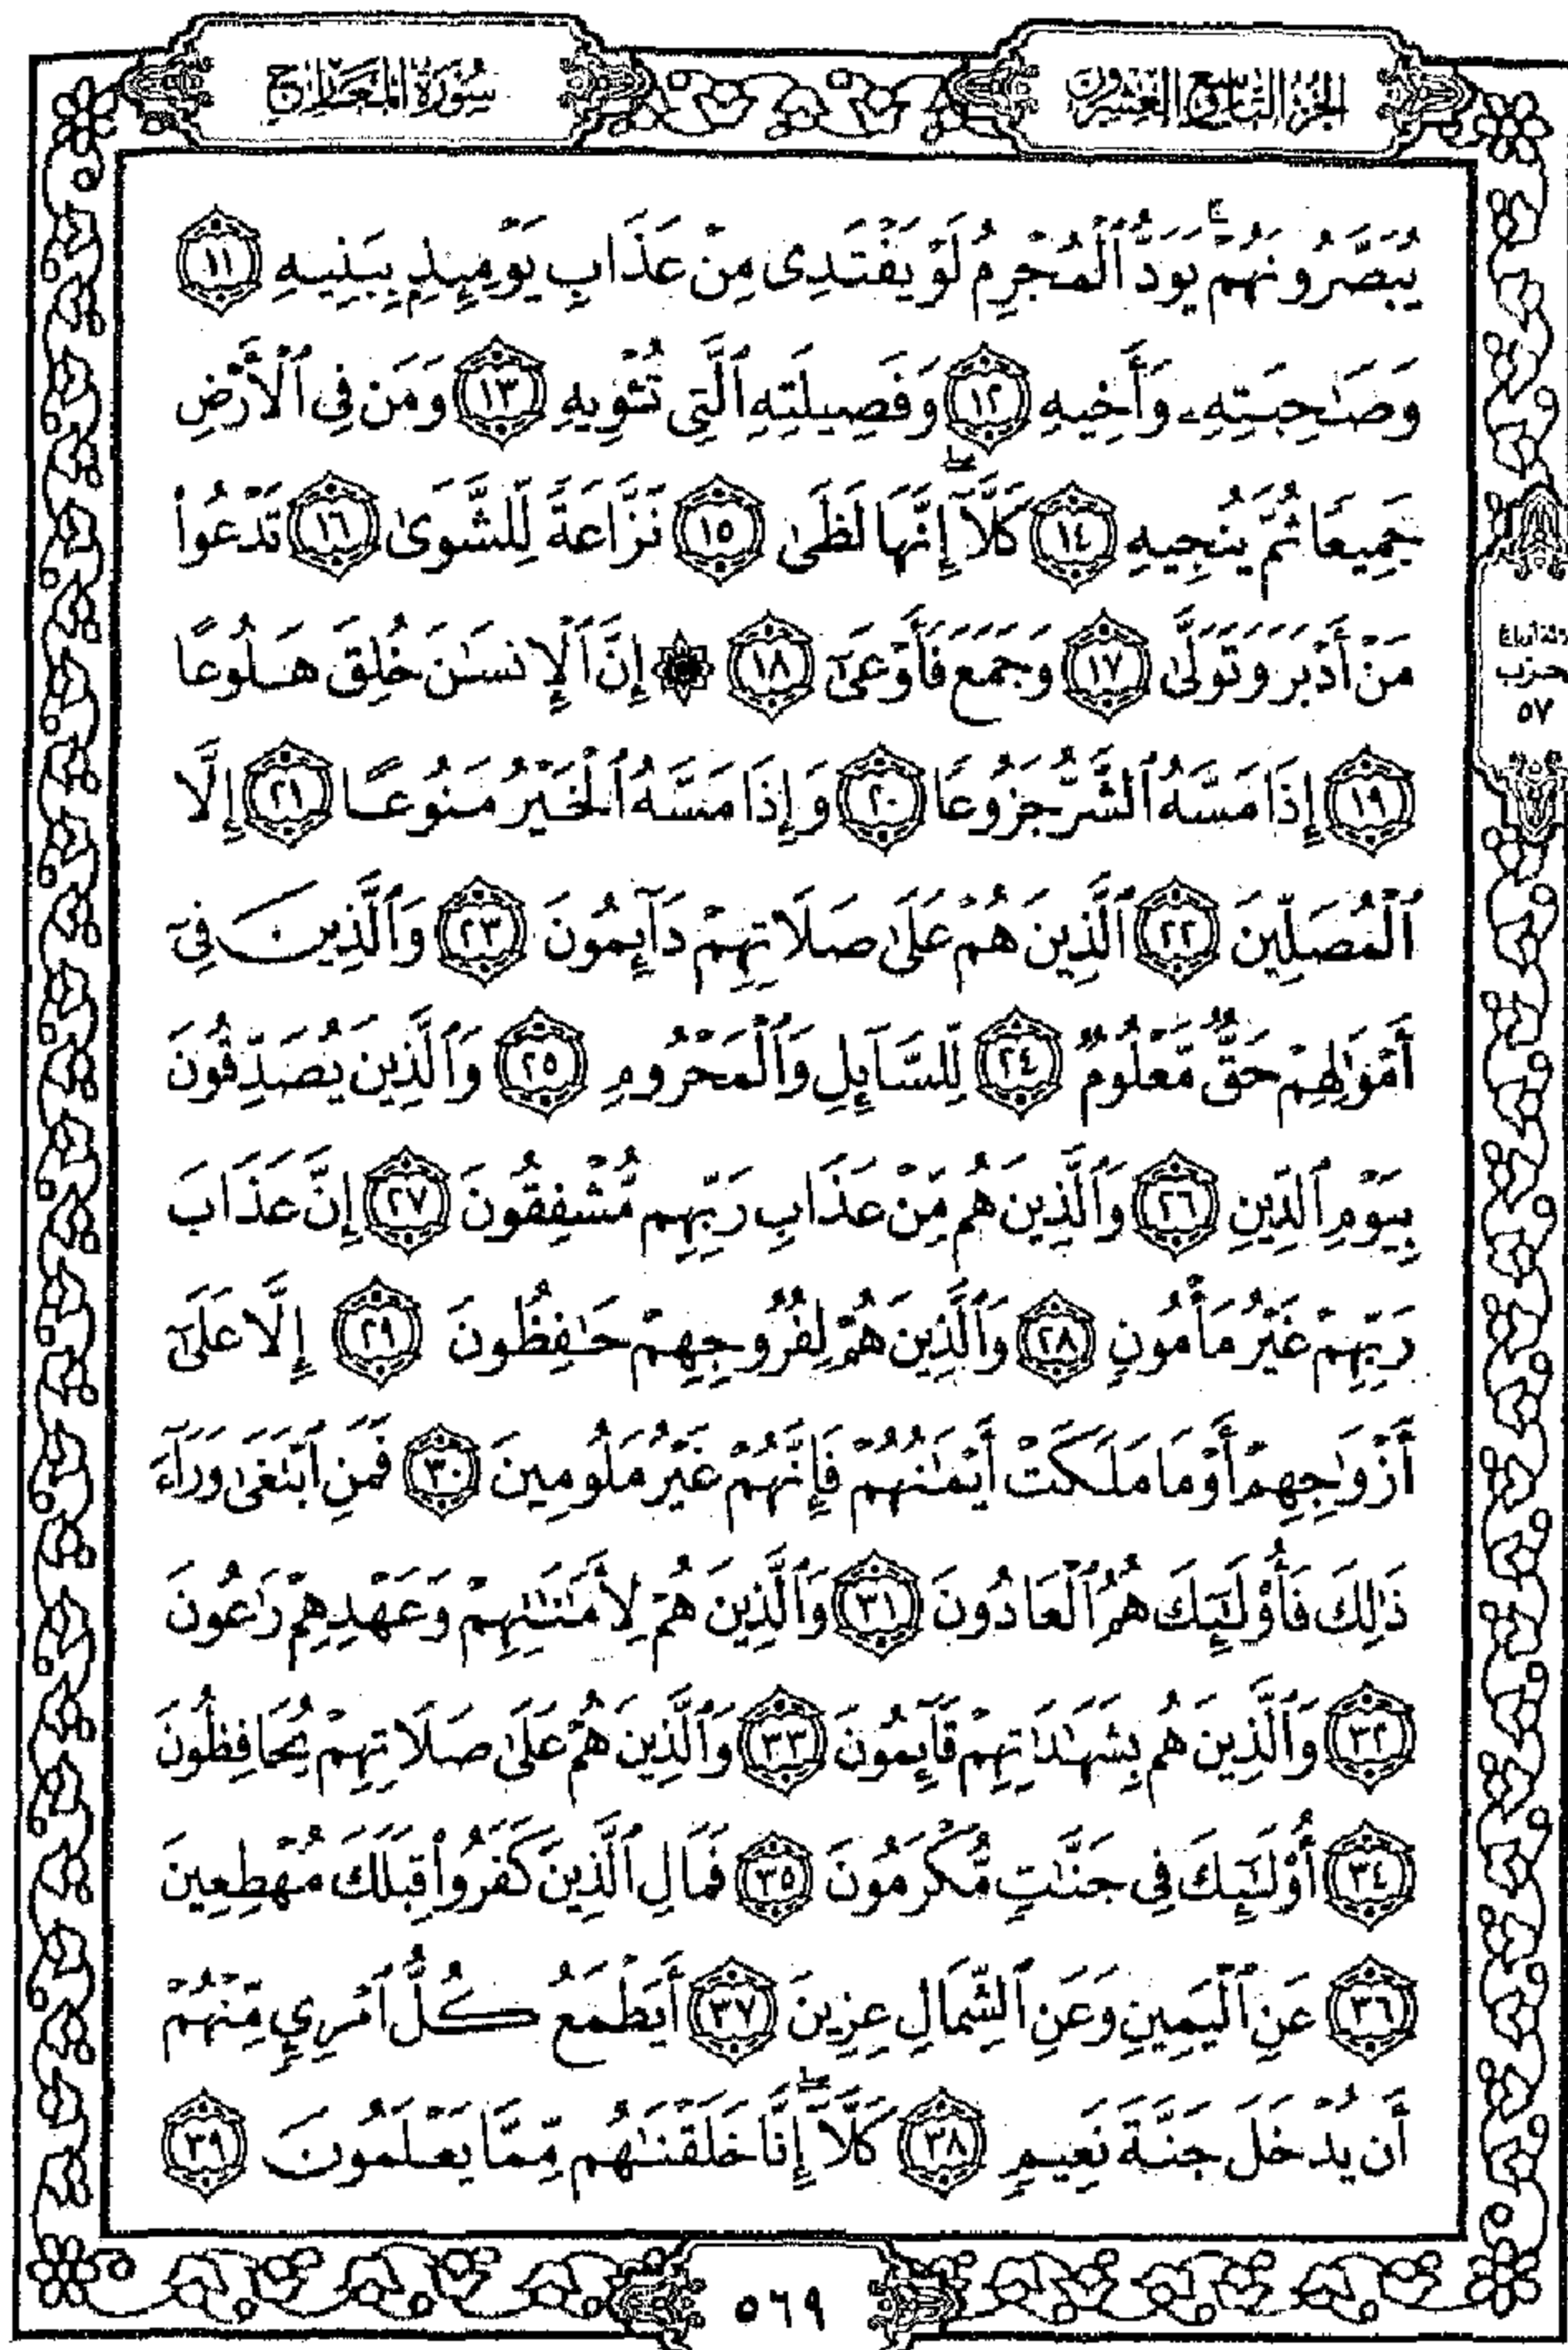 الجزء التاسع والعشرون
سورة المعارج
يُبَصَّرُونَهُمْ ۚ يَوَدُّ ٱلْمُجْرِمُ لَوْ يَفْتَدِى مِنْ عَذَابِ يَوْمِئِذٍۭ بِبَنِيهِ ١١
وَصَـٰحِبَتِهِۦ وَأَخِيهِ ١٢ وَفَصِيلَتِهِ ٱلَّتِى تُـْٔوِيهِ ١٣ وَمَن فِى ٱلْأَرْضِ
جَمِيعًا ثُمَّ يُنجِيهِ ١٤ كَلَّآ ۖ إِنَّهَا لَظَىٰ ١٥ نَزَّاعَةً لِّلشَّوَىٰ ١٦ تَدْعُوا۟
مَنْ أَدْبَرَ وَتَوَلَّىٰ ١٧ وَجَمَعَ فَأَوْعَىٰٓ ١٨ ۞ إِنَّ ٱلْإِنسَـٰنَ خُلِقَ هَلُوعًا
١٩ إِذَا مَسَّهُ ٱلشَّرُّ جَزُوعًا ٢٠ وَإِذَا مَسَّهُ ٱلْخَيْرُ مَنُوعًا ٢١ إِلَّا
ٱلْمُصَلِّينَ ٢٢ ٱلَّذِينَ هُمْ عَلَىٰ صَلَاتِهِمْ دَآئِمُونَ ٢٣ وَٱلَّذِينَ فِىٓ
أَمْوَٰلِهِمْ حَقٌّ مَّعْلُومٌ ٢٤ لِّلسَّآئِلِ وَٱلْمَحْرُومِ ٢٥ وَٱلَّذِينَ يُصَدِّقُونَ
بِيَوْمِ ٱلدِّينِ ٢٦ وَٱلَّذِينَ هُم مِّنْ عَذَابِ رَبِّهِم مُّشْفِقُونَ ٢٧ إِنَّ عَذَابَ
رَبِّهِمْ غَيْرُ مَأْمُونٍ ٢٨ وَٱلَّذِينَ هُمْ لِفُرُوجِهِمْ حَـٰفِظُونَ ٢٩ إِلَّا عَلَىٰٓ
أَزْوَٰجِهِمْ أَوْ مَا مَلَكَتْ أَيْمَـٰنُهُمْ فَإِنَّهُمْ غَيْرُ مَلُومِينَ ٣٠ فَمَنِ ٱبْتَغَىٰ وَرَآءَ
ذَٰلِكَ فَأُو۟لَـٰٓئِكَ هُمُ ٱلْعَادُونَ ٣١ وَٱلَّذِينَ هُمْ لِأَمَـٰنَـٰتِهِمْ وَعَهْدِهِمْ رَٰعُونَ
٣٢ وَٱلَّذِينَ هُم بِشَهَـٰدَٰتِهِمْ قَآئِمُونَ ٣٣ وَٱلَّذِينَ هُمْ عَلَىٰ صَلَاتِهِمْ يُحَافِظُونَ
٣٤ أُو۟لَـٰٓئِكَ فِى جَنَّـٰتٍ مُّكْرَمُونَ ٣٥ فَمَالِ ٱلَّذِينَ كَفَرُوا۟ قِبَلَكَ مُهْطِعِينَ
٣٦ عَنِ ٱلْيَمِينِ وَعَنِ ٱلشِّمَالِ عِزِينَ ٣٧ أَيَطْمَعُ كُلُّ ٱمْرِئٍ مِّنْهُمْ
أَن يُدْخَلَ جَنَّةَ نَعِيمٍ ٣٨ كَلَّآ ۖ إِنَّا خَلَقْنَـٰهُم مِّمَّا يَعْلَمُونَ ٣٩
ثلاثة أرباع
حزب
٥٧
٥٦٩